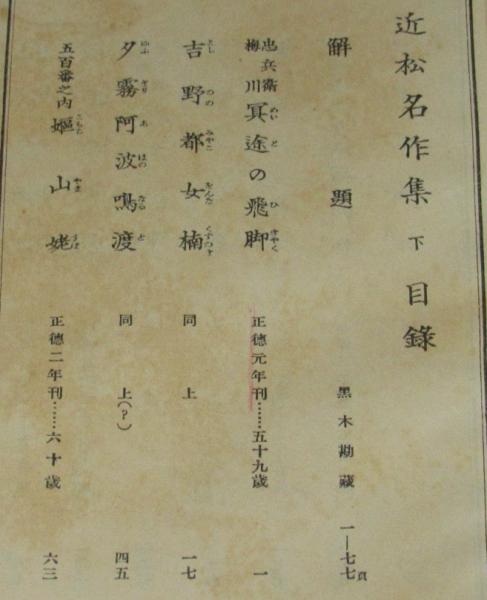 近松名作集 下 目錄
解題 黑木勘藏 一—七七頁
忠兵衛梅川 冥途の飛脚 正德元年刊……五十九歲 一
吉野都女楠 同上 一七
夕霧阿波鳴渡 同上(?) 四五
五百番之內 嫗山姥 正德二年刊……六十歲 六三